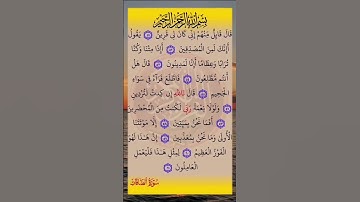 بسم الله الرحمن الرحيم
قَالَ قَائِلٌ مِّنْهُمْ إِنِّي كَانَ لِي قَرِينٌ ﴿٥١﴾ يَقُولُ
أَإِنَّكَ لَمِنَ الْمُصَدِّقِينَ ﴿٥٢﴾ أَإِذَا مِتْنَا وَكُنَّا
تُرَابًا وَعِظَامًا أَإِنَّا لَمَدِينُونَ ﴿٥٣﴾ قَالَ هَلْ
أَنتُم مُّطَّلِعُونَ ﴿٥٤﴾ فَاطَّلَعَ فَرَآهُ فِي سَوَاءِ
الْجَحِيمِ ﴿٥٥﴾ قَالَ تَاللَّهِ إِن كِدتَّ لَتُرْدِينِ
﴿٥٦﴾ وَلَوْلَا نِعْمَةُ رَبِّي لَكُنتُ مِنَ الْمُحْضَرِينَ
﴿٥٧﴾ أَفَمَا نَحْنُ بِمَيِّتِينَ ﴿٥٨﴾ إِلَّا مَوْتَتَنَا
الْأُولَىٰ وَمَا نَحْنُ بِمُعَذَّبِينَ ﴿٥٩﴾ إِنَّ هَٰذَا لَهُوَ
الْفَوْزُ الْعَظِيمُ ﴿٦٠﴾ لِمِثْلِ هَٰذَا فَلْيَعْمَلِ
الْعَامِلُونَ ﴿٦١﴾
سورة الصافات